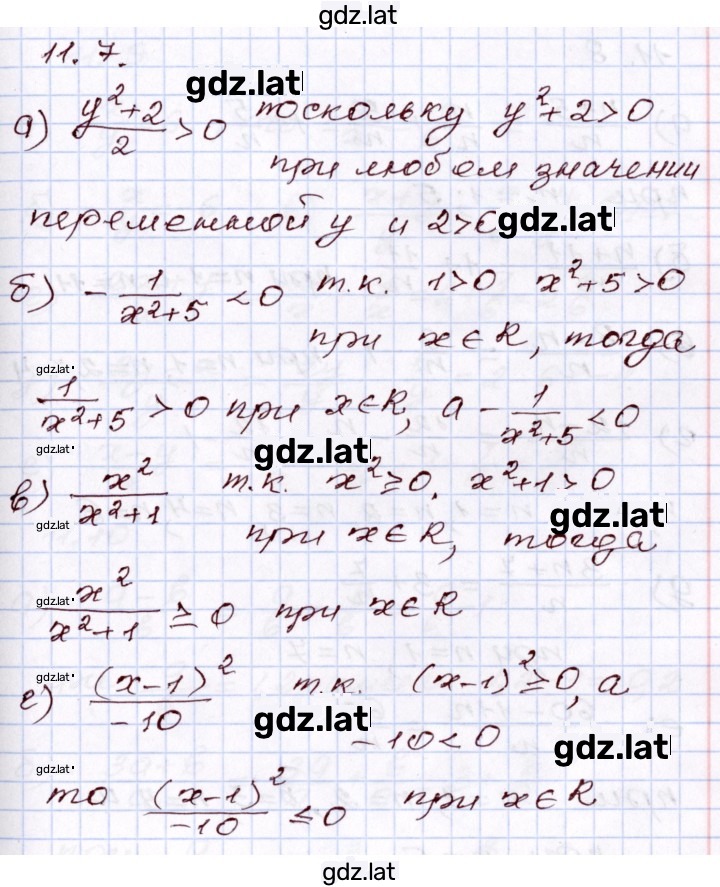 gdz.lat
11.7.
gdz.lat
а) (y²+2)/2 > 0 поскольку y²+2>0
при любом значении
переменной y и 2>0 gdz.lat
б) - 1/(x²+5) < 0 т.к. 1>0 x²+5>0
при x∈R, тогда
gdz.lat
1/(x²+5) > 0 при x∈R, а - 1/(x²+5) < 0
gdz.lat gdz.lat
в) x²/(x²+1) т.к. x²≥0, x²+1>0
gdz.lat gdz.lat
при x∈R, тогда
gdz.lat
x²/(x²+1) ≥ 0 при x∈R
gdz.lat
г) (x-1)²/-10 т.к. (x-1)²≥0, а
gdz.lat
-10<0
gdz.lat
gdz.lat
то (x-1)²/-10 ≤0 при x∈R
gdz.lat